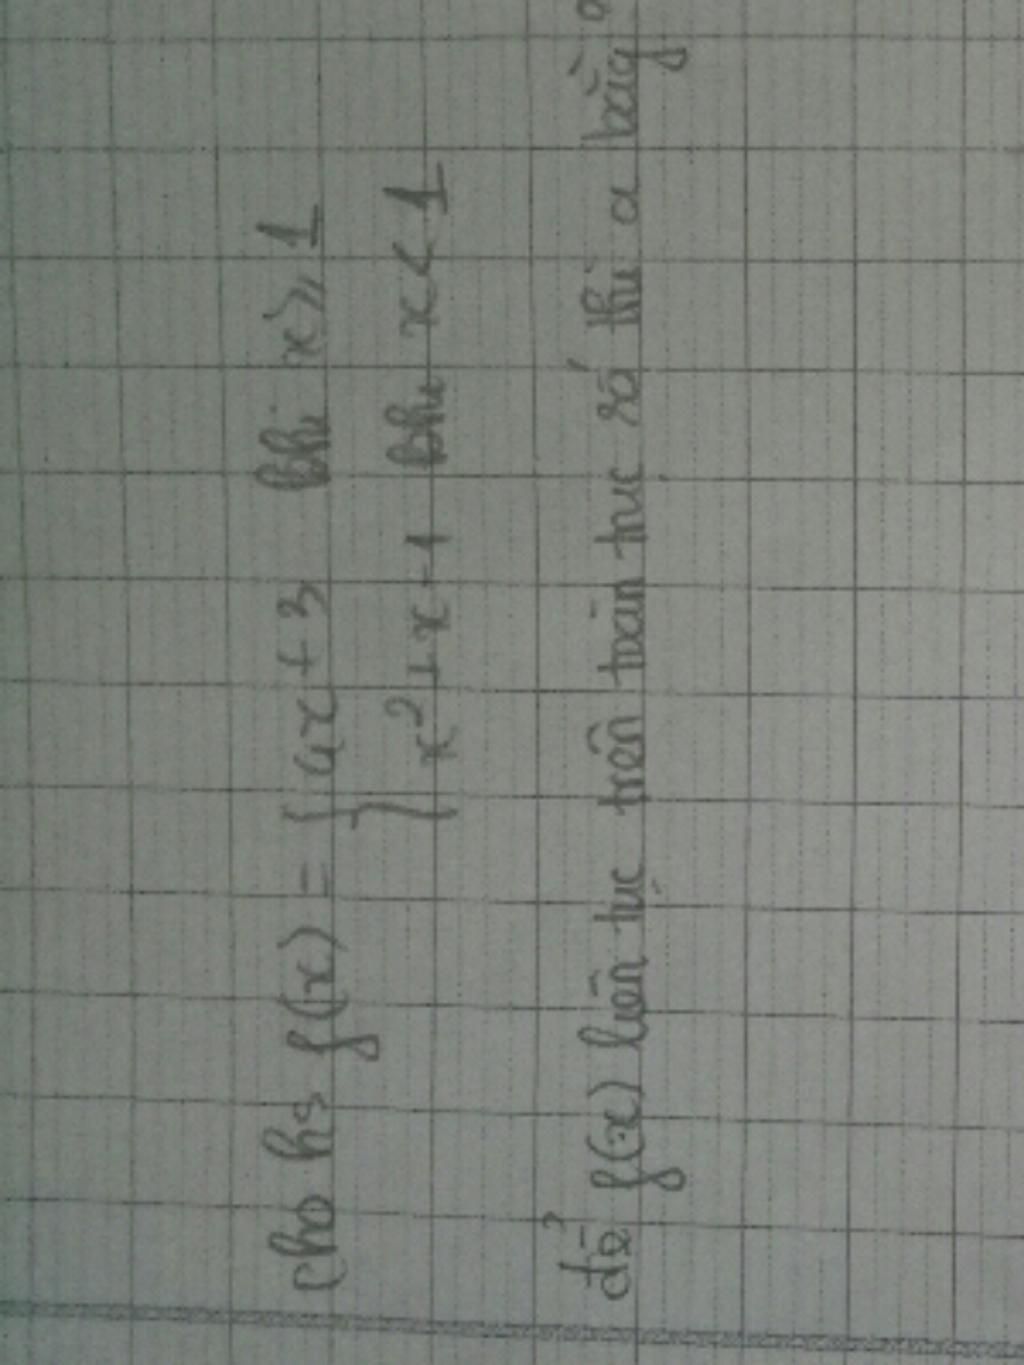 cho hs f(x) = { ax + 3 khi x ⩾ 1
x² + x - 1 khi x < 1
để f(x) liên tục trên toàn trục số thì a bằng